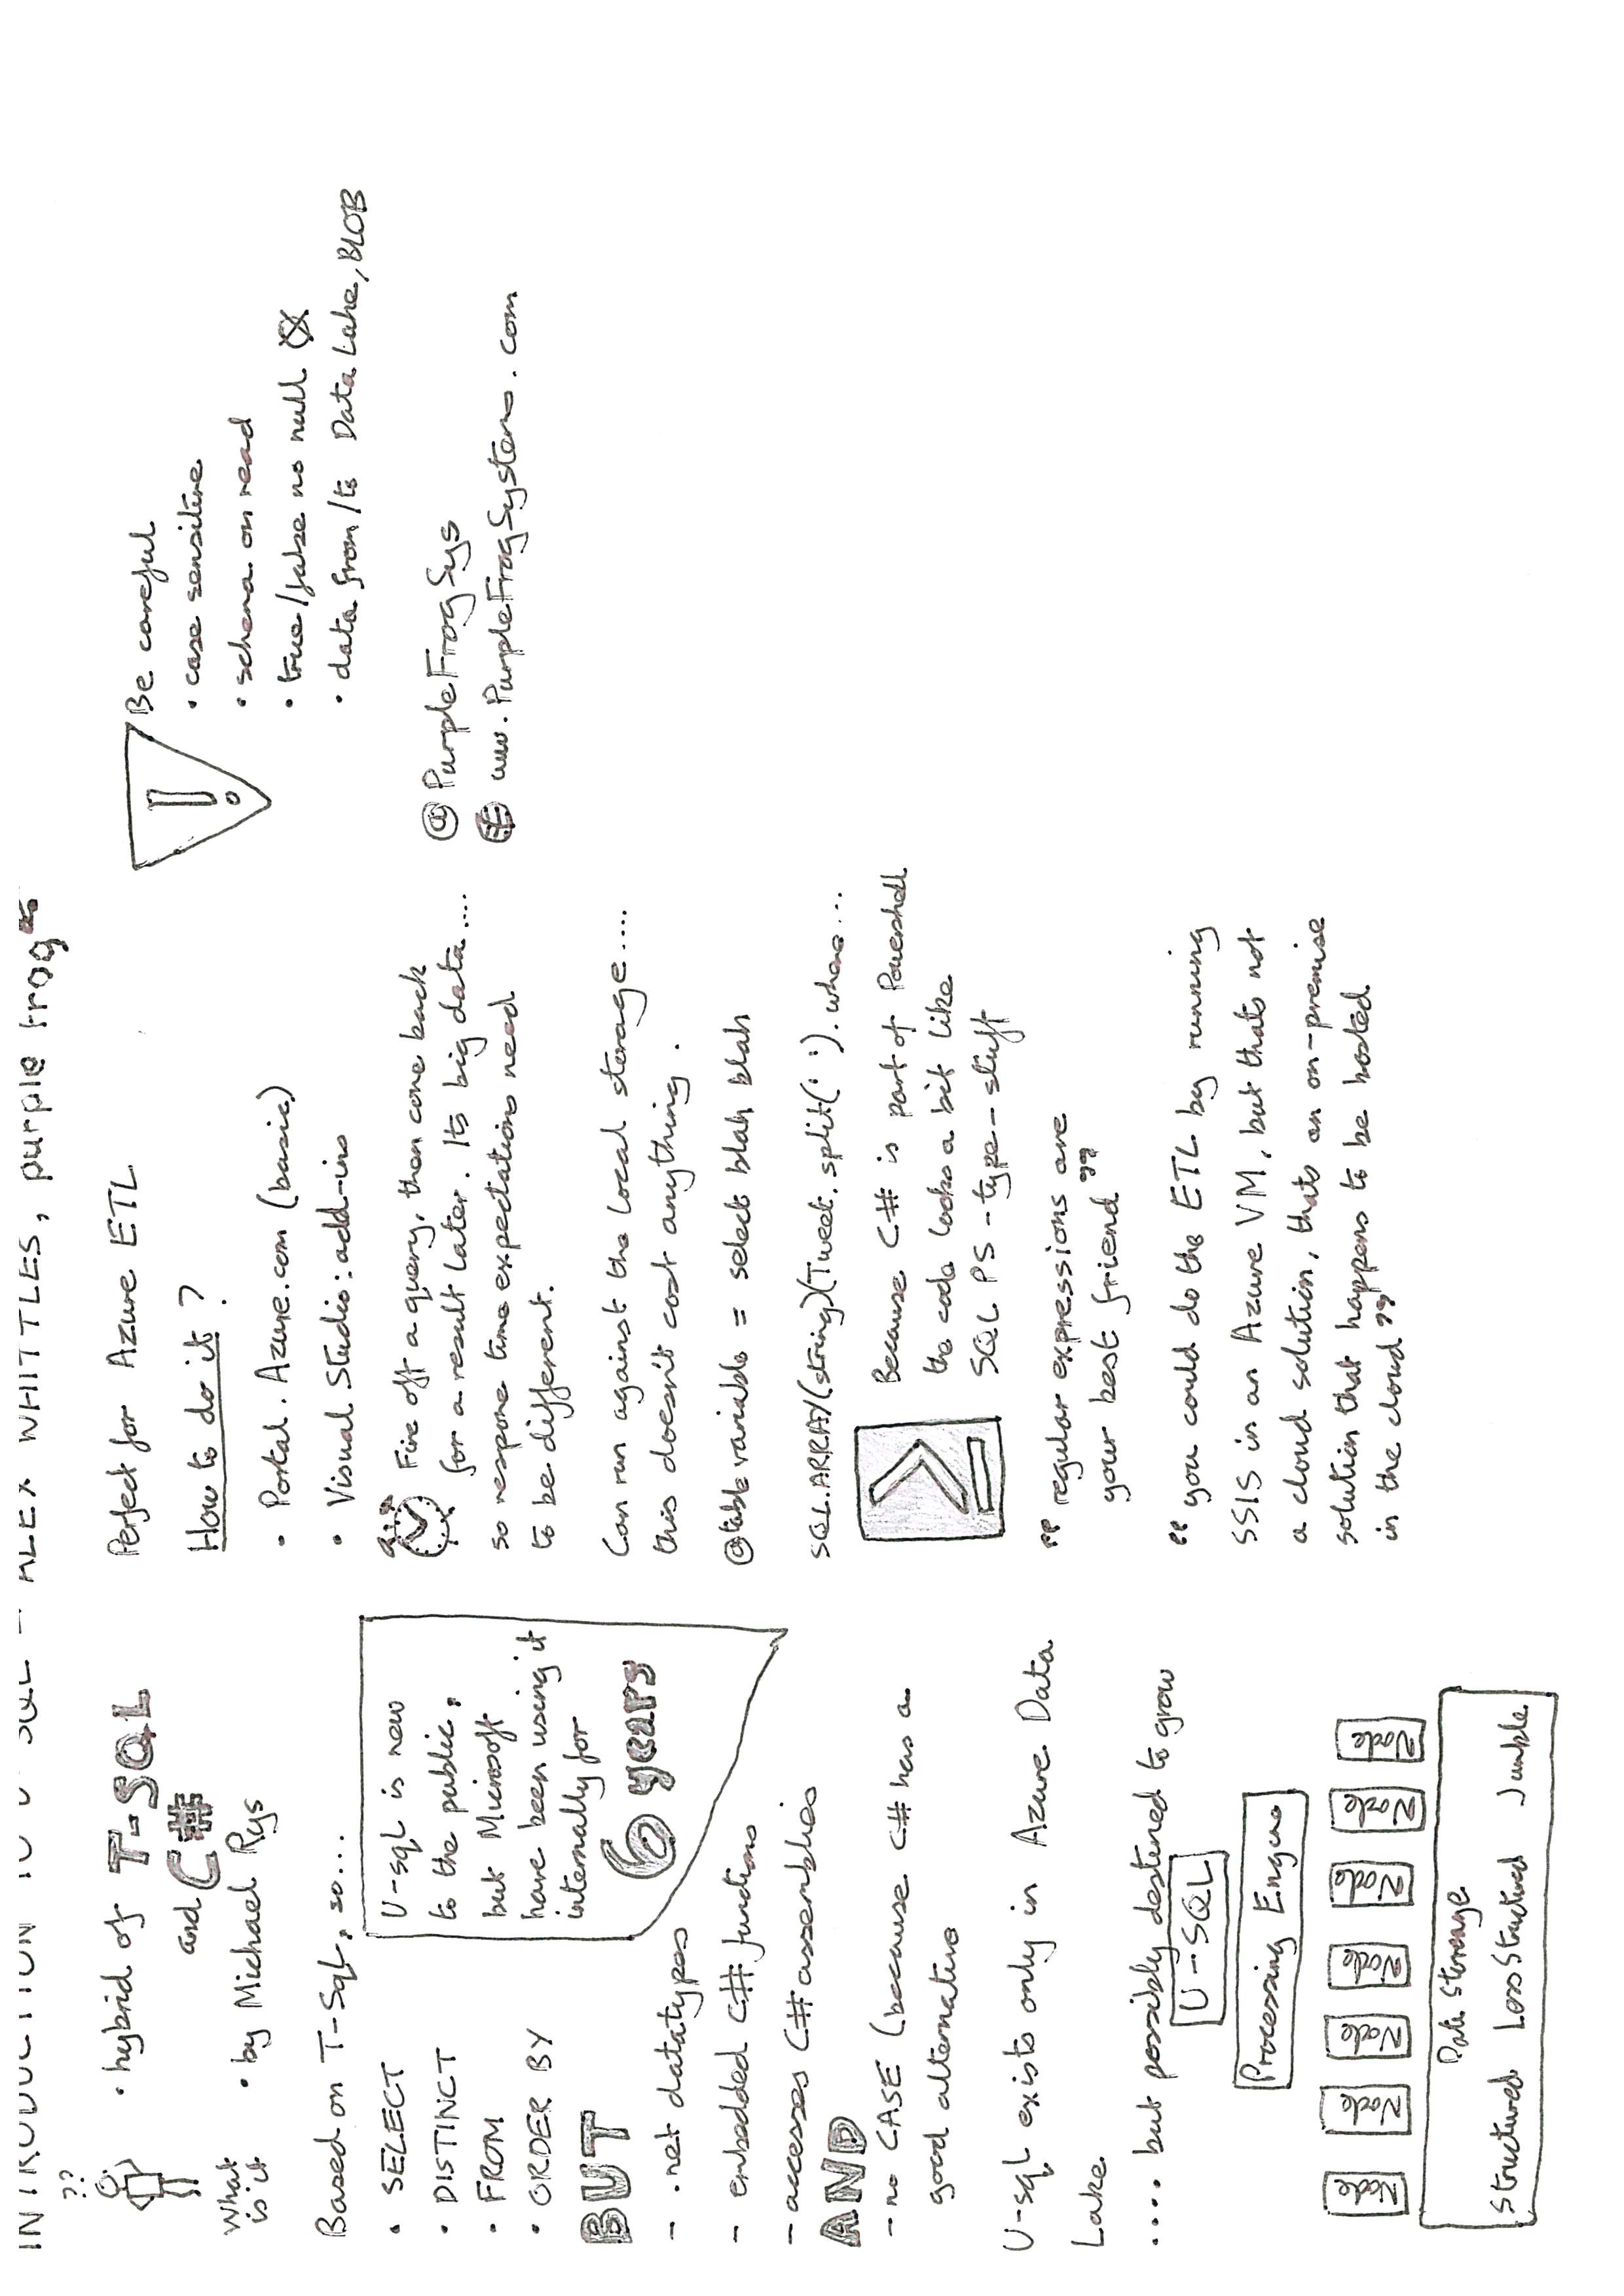 INTRODUCTION TO U-SQL - ALEX WHITTLES, purple frog
??
What
is it
• hybrid of T-SQL
and C#
• by Michael Rys
Based on T-SQL, so...
• SELECT
• DISTINCT
• FROM
• ORDER BY
U-sql is new
to the public,
but Microsoft
have been using it
internally for
6 years
BUT
- .net datatypes
- embedded C# functions
- accesses C# assemblies
AND
- no CASE (because C# has a
good alternative
U-sql exists only in Azure Data
Lake.
.... but possibly destined to grow
U-SQL
Processing Engine
Node Node Node Node Node Node Node
Data Storage
Structured Less Structured Jumble
Perfect for Azure ETL
How to do it?
• Portal.Azure.com (basic)
• Visual Studio: add-ins
Fire off a query, then come back
for a result later. Its big data....
so respone time expectations need
to be different.
Can run against the local storage....
this doesn't cost anything.
@table variable = select blah blah
SQL.ARRAY(string)(Tweet.split(' ').where...
Because C# is part of Powershell
the code looks a bit like
SQL PS-type-stuff
“ regular expressions are
your best friend ”
“ you could do the ETL by running
SSIS in an Azure VM, but thats not
a cloud solution, thats an on-premise
solution that happens to be hosted
in the cloud ”
! Be careful
• case sensitive
• schema on read
• true/false no null
• data from/to Data Lake, BLOB
@ PurpleFrogSys
www.PurpleFrogSystems.com